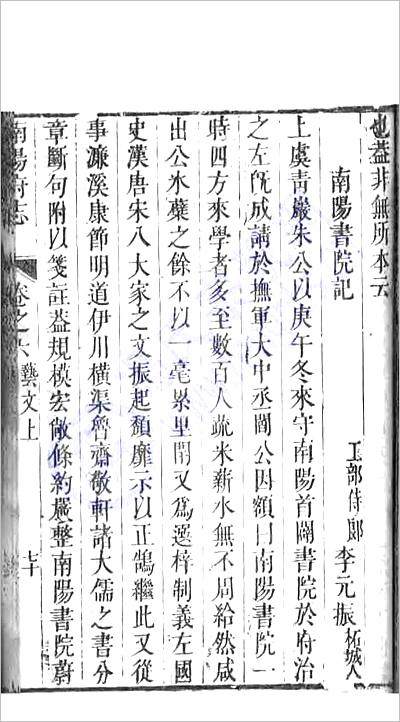 也葢非無所本云
南陽書院記
工部侍郞李元振柘城人
上虞靑巖朱公以庚午冬來守南陽首闢書院於府治
之左旣成請於撫軍大中丞閻公因額曰南陽書院一
時四方來學者多至數百人蔬米薪水無不周給然咸
出公氷蘗之餘不以一毫累里閈又爲選梓制義左國
史漢唐宋八大家之文振起頹靡示以正鵠繼此又從
事濂溪康節明道伊川橫渠魯齋敬軒諸大儒之書分
章斷句附以箋註葢規模宏敞條約嚴整南陽書院蔚
南陽府志
卷之六藝文上
七十